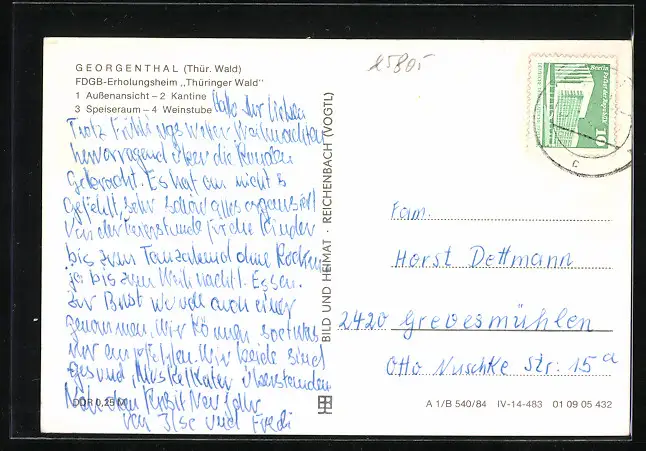 15805
GEORGENTHAL (Thür. Wald)
FDGB-Erholungsheim „Thüringer Wald"
1 Außenansicht – 2 Kantine
3 Speiseraum – 4 Weinstube
Hallo Ihr Lieben
Trotz Frühlingswetter Weihnachten
hervorragend über die Runden
gebracht. Es hat an nichts
gefehlt, sehr schön alles organisiert
Von der Feierstunde für die Kinder
bis zum Tanzabend ohne
ja bis zum Weihnachtl. Essen.
Zur Brust wurde auch einer
genommen. Wir können so etwas
nur empfehlen. Wir beide sind
gesund, Muskelkater überstanden
Neujahr
von Ilse und Fredi
DDR 0,25 M
BILD UND HEIMAT · REICHENBACH (VOGTL)
Berlin Palast der Republik
10
Fam.
Horst Dettmann
2420 Grevesmühlen
Otto Nuschke Str: 15a
A 1/B 540/84 IV-14-483 01 09 05 432